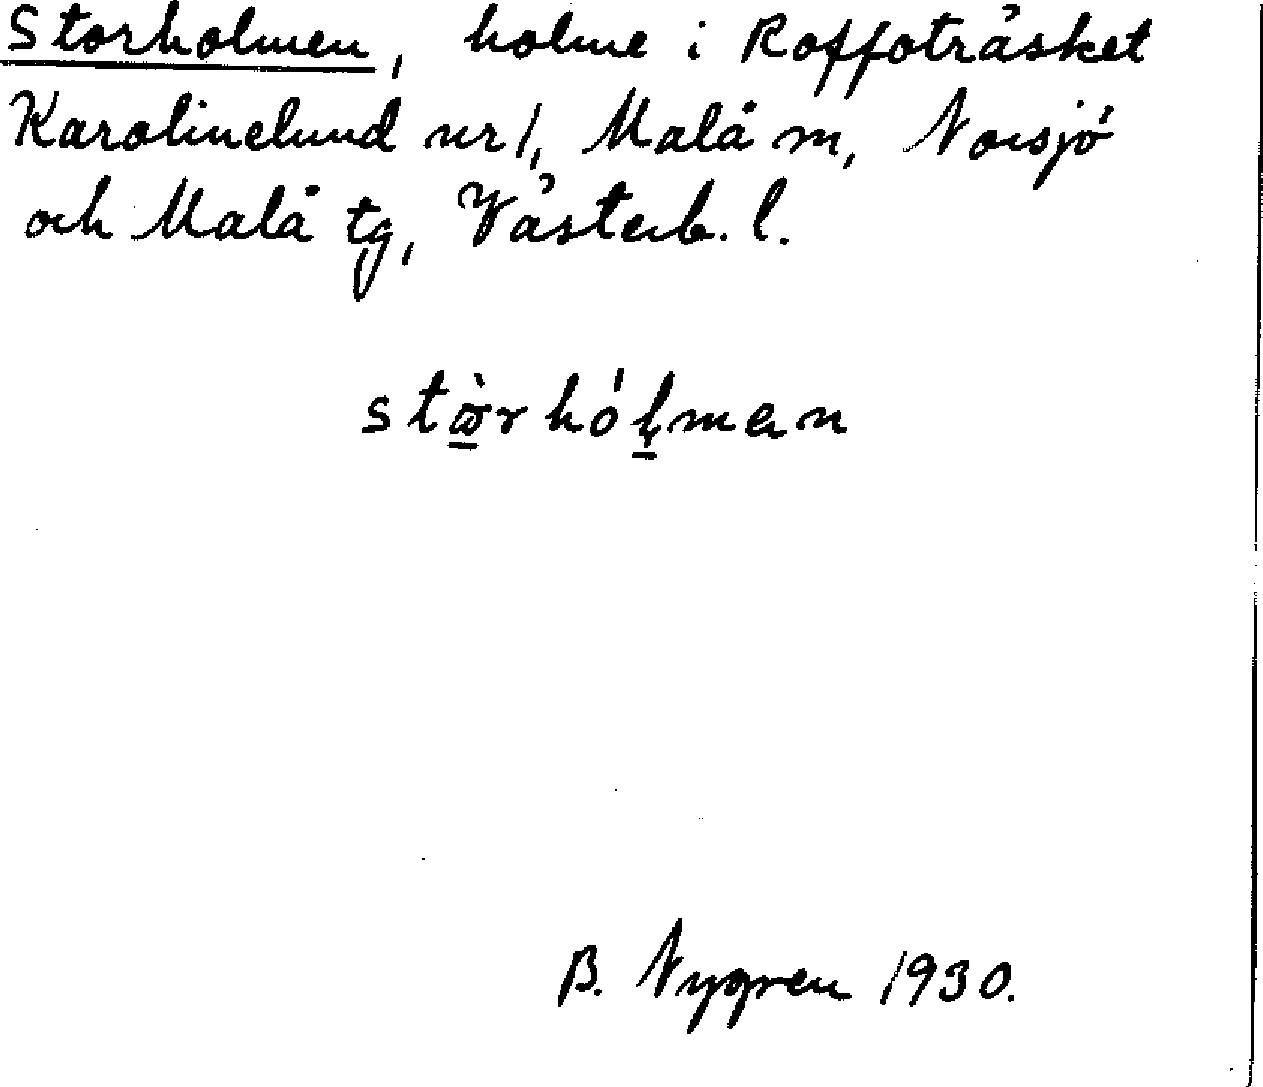 Storholmen, holme i Roffoträsket
Karolinelund nr 1, Malå m, Norsjö
och Malå tg, Västerb. l.
stɷ̀rhóḷman
B. Nygren 1930.